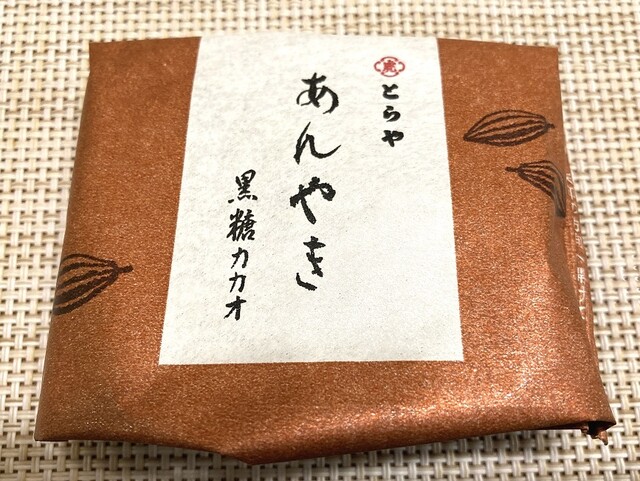 虎
とらや
あんやき
黒糖カカオ